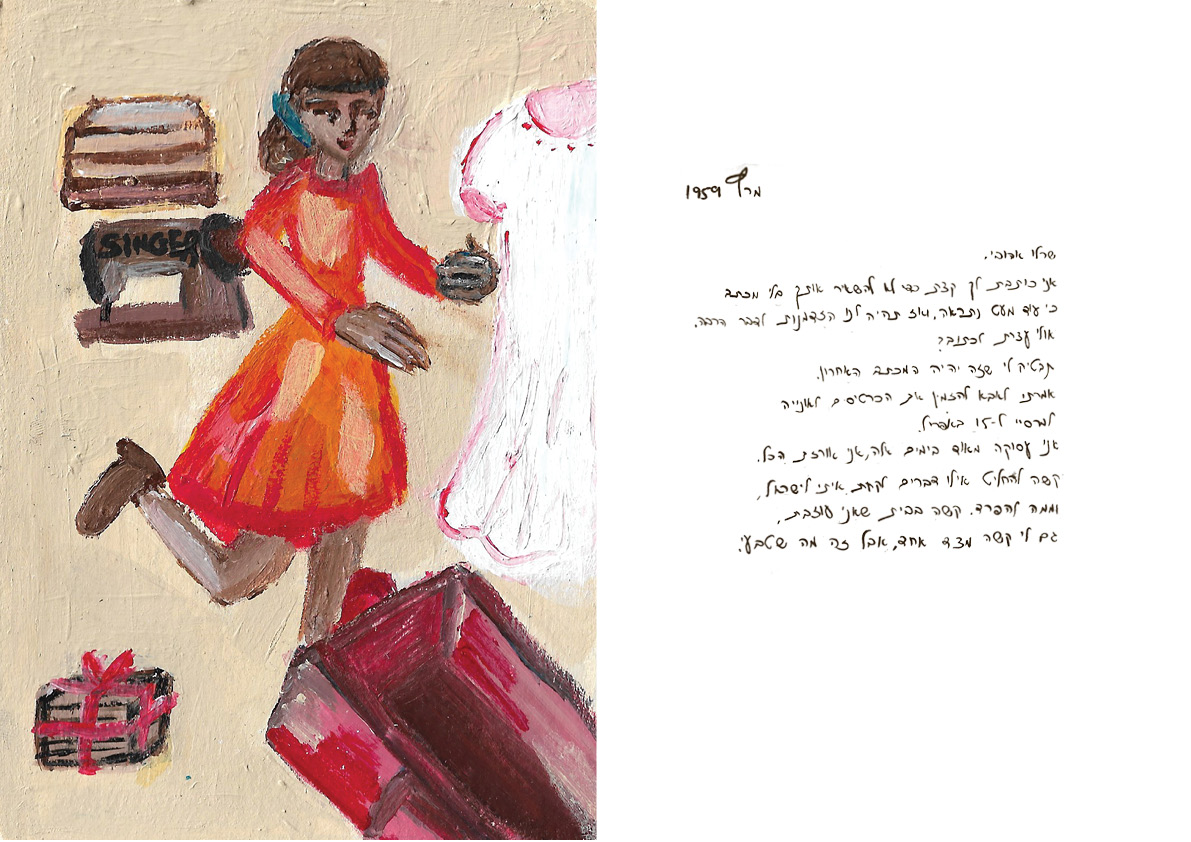 SINGER
מרץ 1959
שרלי אהובי.
אני כותבת לך קצת כדי לא להשאיר אותך בלי מכתב
כי עוד מעט נתראה, ואז תהיה לנו הזדמנות לדבר הרבה.
אולי עצרת לכתוב?
תבטיח לי שזה יהיה המכתב האחרון.
אמרתי לאבא להזמין את הכרטיסים לאונייה
למרסיי ל-15 באפריל.
אני עסוקה מאוד בימים אלה, אני אורזת הכל.
קשה להחליט אילו דברים לקחת איתי לישראל,
וממה להפרד. קשה בבית שאני עוזבת,
גם לי קשה מצד אחד, אבל זה מה שטבעי.